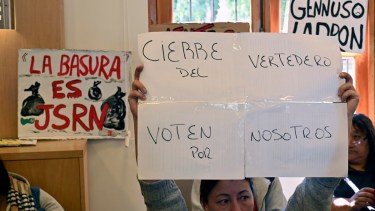 "LA BASURA
ES
JSRN"
CIERRE
DEL
VERTEDERO
VOTEN
POR
NOSOTROS
GENNUSO
LADRON